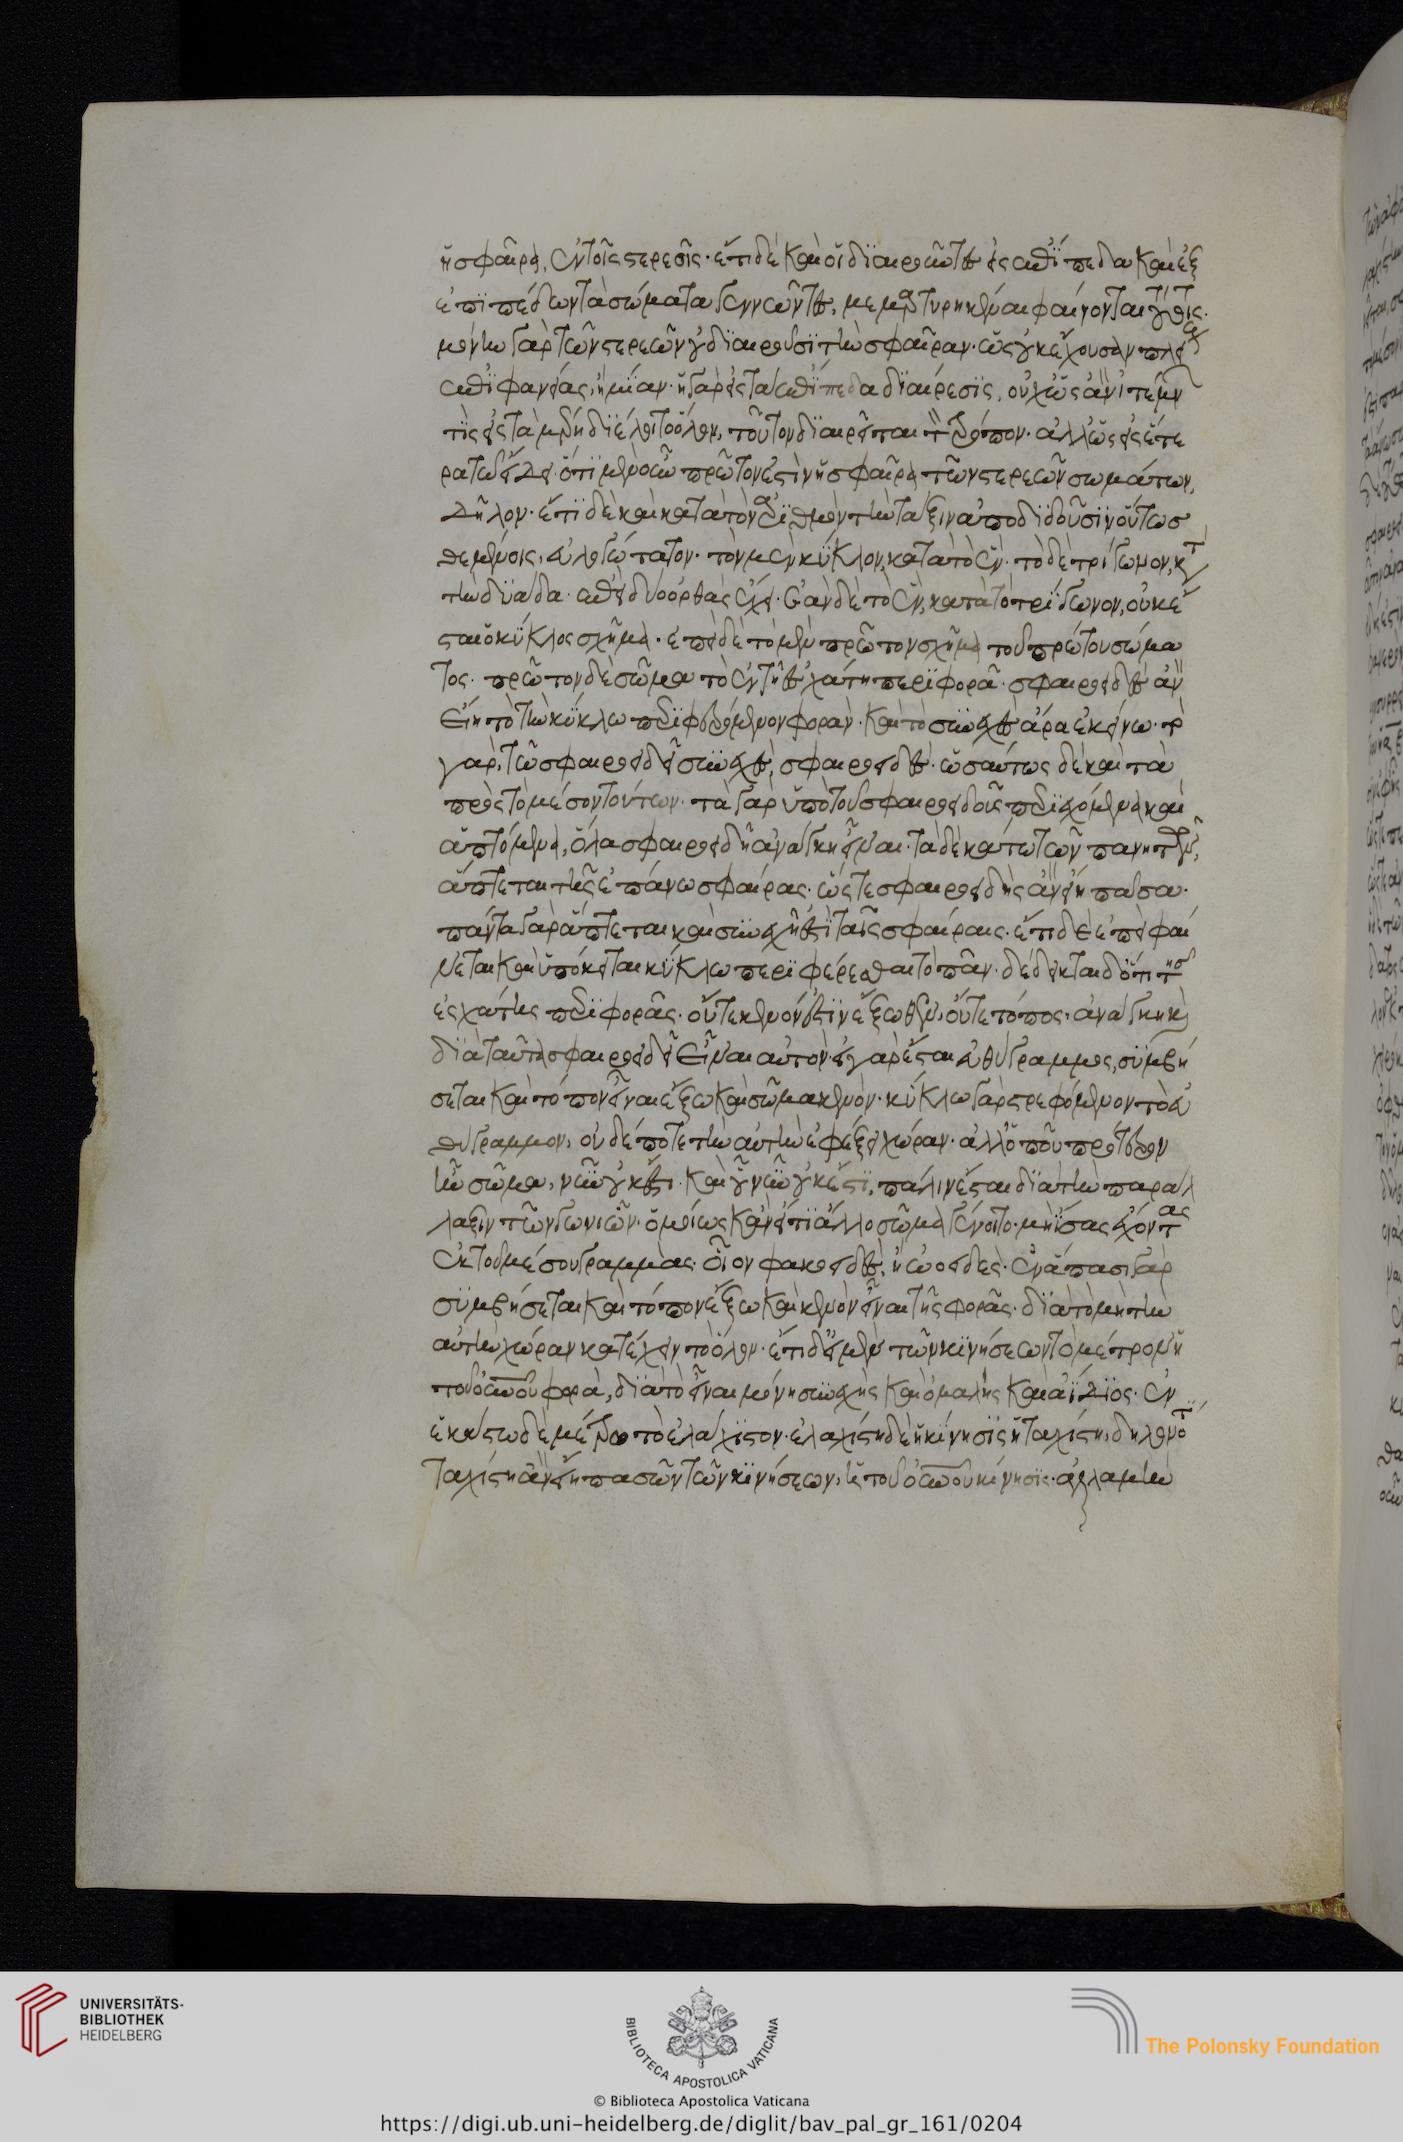 ἡ σφαῖρα, ἐν τοῖς στερεοῖς· ἔτι δὲ καὶ οἱ διαιροῦντες εἰς ἐπίπεδα καὶ ἐξ
ἐπιπέδων τὰ σώματα γεννῶντες, μεμαρτυρηκέναι φαίνονται τούτοις·
μόνην γὰρ τῶν στερεῶν οὐ διαιροῦσι τὴν σφαῖραν· ὡς οὐκ ἔχουσαν πλείους
ἐπιφανείας, ἢ μίαν· ἡ γὰρ εἰς τὰ ἐπίπεδα διαίρεσις, οὐχ ὡς ἄν τι τέμνων
τις εἰς τὰ μέρη διέλοι τὸ ὅλον, τοῦτον διαιρεῖται τὸν τρόπον· ἀλλ' ὡς εἰς ἕτε
ρα τῷ εἴδει· ὅτι μὲν οὖν πρῶτόν ἐστιν ἡ σφαῖρα τῶν στερεῶν σωμάτων,
δῆλον· ἔτι δὲ καὶ κατὰ τὸν ἀριθμὸν τὴν τάξιν ἀποδιδοῦσιν οὕτως
θεμένοις, εὐλογώτατον· τὸν μὲν κύκλον, κατὰ τὸ ἕν· τὸ δὲ τρίγωνον, κατὰ
τὴν δυάδα· ἐπεὶ δύο ὀρθὰς ἔχει· ἐὰν δὲ τὸ ἕν, κατὰ τὸ τρίγωνον, οὐκ ἔ
σται ὁ κύκλος σχῆμα· ἐπεὶ δὲ τὸ μὲν πρῶτον σχῆμα τοῦ πρώτου σώμα
τος· πρῶτον δὲ σῶμα τὸ ἐν τῇ ἐσχάτῃ περιφορᾷ· σφαιροειδὲς ἂν
εἴη τὸ τὴν κύκλω περιφερόμενον φοράν· καὶ τὸ συνεχὲς ἄρα ἐκείνω· τὸ
γὰρ τῷ σφαιροειδεῖ συνεχὲς, σφαιροειδές· ὡσαύτως δὲ καὶ τὰ
πρὸς τὸ μέσον τούτων· τὰ γὰρ ὑπὸ τοῦ σφαιροειδοῦς περιεχόμενα καὶ
ἁπτόμενα, ὅλα σφαιροειδῆ ἀνάγκη εἶναι· τὰ δὲ κάτω τῶν πλανητῶν,
ἅπτεται τῆς ἐπάνω σφαίρας· ὥστε σφαιροειδὴς ἂν εἴη πᾶσα·
πάντα γὰρ ἅπτεται καὶ συνεχῆ ἐστι ταῖς σφαίραις· ἔτι δὲ ἐπεὶ φαί
νεται καὶ ὑπόκειται κύκλω περιφέρεσθαι τὸ πᾶν· δέδεικται δ' ὅτι τῆς
ἐσχάτης περιφορᾶς· οὔτε κενόν ἐστιν ἔξωθεν, οὔτε τόπος· ἀνάγκη καὶ
διὰ ταῦτα σφαιροειδῆ εἶναι αὐτόν· εἰ γὰρ ἔσται εὐθύγραμμος, συμβή
σεται καὶ τόπον εἶναι ἔξω καὶ σῶμα καὶ κενόν· κύκλω γὰρ στρεφόμενον τὸ εὐ
θύγραμμον, οὐδέποτε τὴν αὐτὴν ἐφέξει χώραν· ἀλλ' ὅπου πρότερον
ἦν σῶμα, νῦν οὐκ ἔστι· καὶ οὗ νῦν οὐκ ἔστι, πάλιν ἔσται διὰ τὴν παράλ
λαξιν τῶν γωνιῶν· ὁμοίως κἂν εἴ τι ἄλλο σῶμα γένοιτο· μὴ ἴσας ἔχον τὰς
ἐκ τοῦ μέσου γραμμάς· οἷον φακοειδές, ἢ ὠοειδές· ἐν ἅπασι γὰρ
συμβήσεται καὶ τόπον ἔξω καὶ κενὸν εἶναι τῆς φορᾶς· διὰ τὸ μὴ τὴν
αὐτὴν χώραν κατέχειν τὸ ὅλον· ἔτι δ' εἰ μὲν τῶν κινήσεων τὸ μέτρον ἡ
τοῦ οὐνοῦ φορά, διὰ τὸ εἶναι μόνη συνεχὴς καὶ ὁμαλὴς καὶ ἀΐδιος· ἐν
ἑκάστω δὲ μέτρον τὸ ἐλάχιστον· ἐλαχίστη δὲ ἡ κίνησις ἡ ταχίστη, δῆλον ὅτι
ταχίστη ἂν εἴη πασῶν τῶν κινήσεων, ἡ τοῦ οὐνοῦ κίνησις· ἀλλὰ μὴν
UNIVERSITÄTS-
BIBLIOTHEK
HEIDELBERG
BIBLIOTECA APOSTOLICA VATICANA
© Biblioteca Apostolica Vaticana
The Polonsky Foundation
https://digi.ub.uni-heidelberg.de/diglit/bav_pal_gr_161/0204